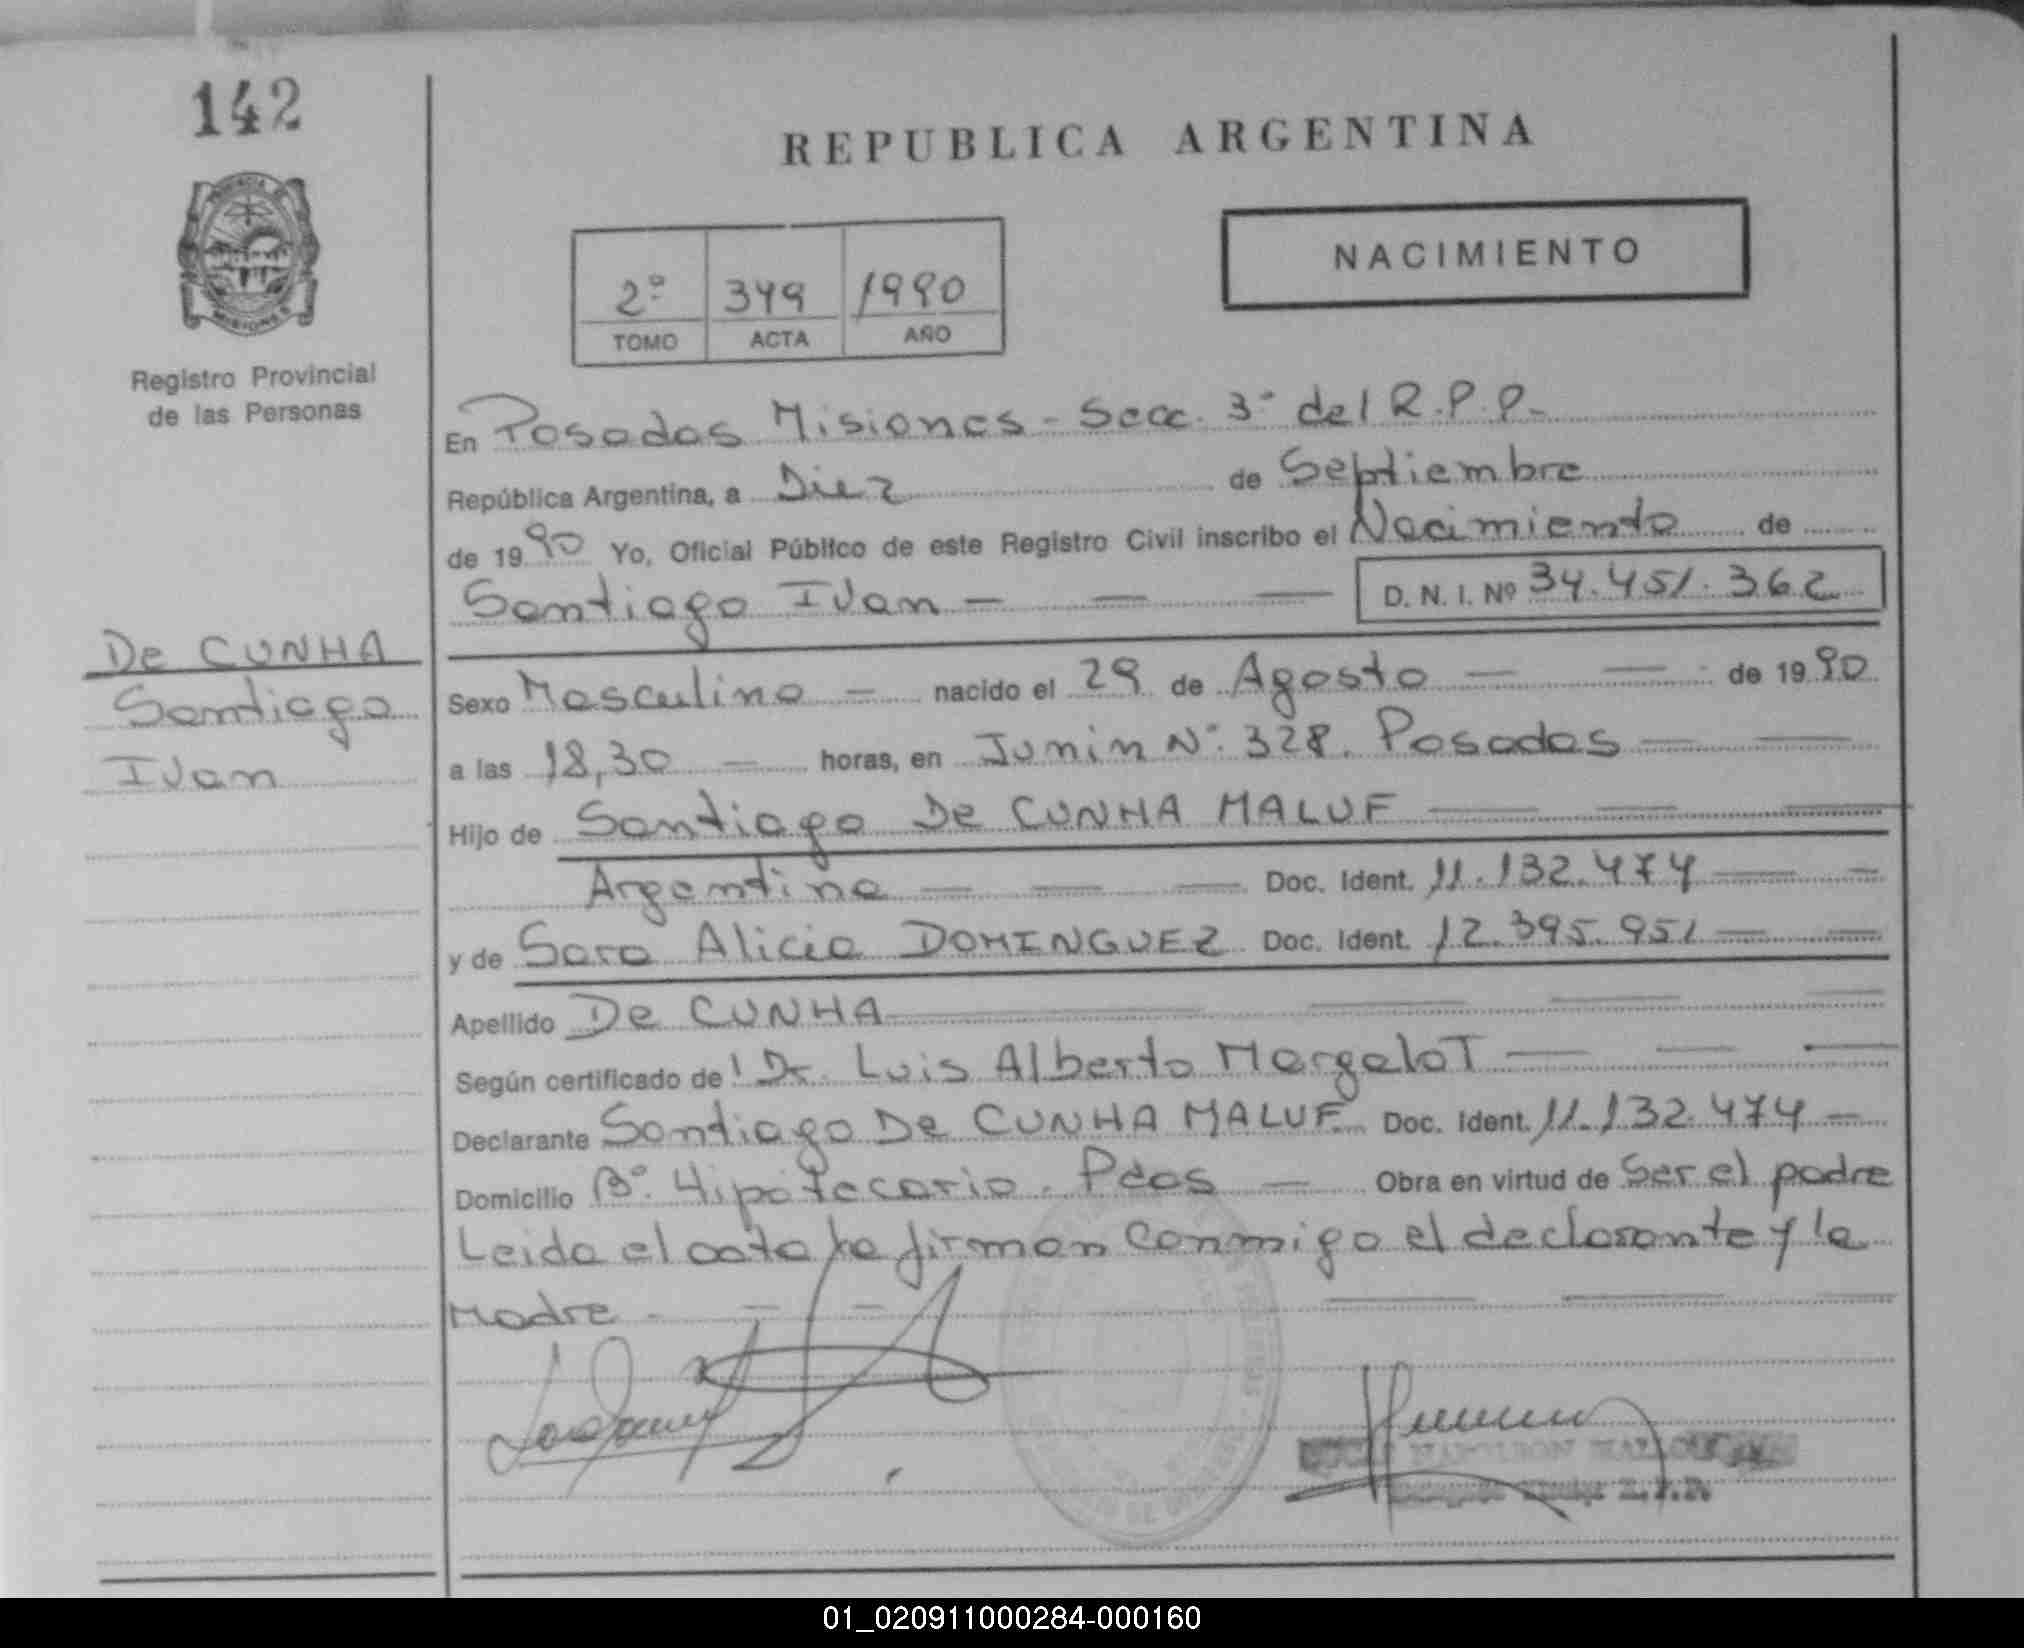 142
REPUBLICA ARGENTINA
NACIMIENTO
2º 349 1990
TOMO ACTA AÑO
MISIONES
Registro Provincial
de las Personas
En Posadas Misiones - Secc. 3ª del R.P.P.
República Argentina, a Diez de Septiembre
de 1990 Yo, Oficial Público de este Registro Civil inscribo el Nacimiento de
Santiago Ivan — — — D.N.I. Nº 34.451.362
De CUNHA
Santiago
Ivan
Sexo Masculino — nacido el 29 de Agosto — — de 1990
a las 18,30 — horas, en Junin Nº 328. Posadas — —
Hijo de Santiago De CUNHA MALUF — — —
Argentino — — — Doc. Ident. 11.132.474 — —
y de Sara Alicia DOMINGUEZ Doc. Ident. 12.395.951 — —
Apellido De CUNHA — — — —
Según certificado del Dr. Luis Alberto Margalot — — —
Declarante Santiago De CUNHA MALUF Doc. Ident. 11.132.474 —
Domicilio Bº. Hipotecario. Pdas — Obra en virtud de Ser el padre
Leida el acta la firman conmigo el declarante y la
Madre — — — — — —
01_020911000284-000160